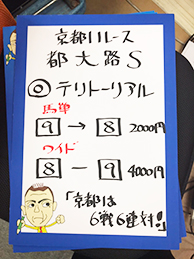 京都11レース
都大路S
◎テリトーリアル
馬単
9→8 2000円
ワイド
8-9 4000円
「京都は
6戦6連対!!」